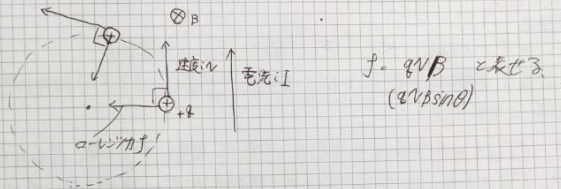 ⊗B
速度:v
電流:I
+q
ローレンツカf
f = qvB と表せる
(qvBsinθ)